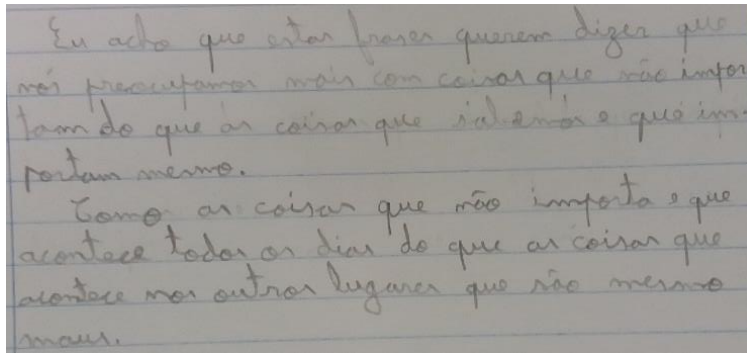 Eu acho que estas frases querem dizer que
nós preocupamos mais com coisas que não impor
tam do que as coisas que sabemos que im-
portam mesmo.
Como as coisas que não importa o que
acontece todos os dias do que as coisas que
acontece nos outros lugares que são mesmo
maus.